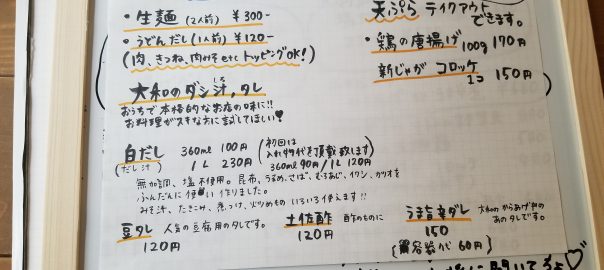 ・生麺(2人前) ¥300-
・うどんだし(1人前) ¥120-
(肉、きつね、肉みそetcトッピングOK!)
天ぷら テイクアウト
できます。
・鶏の唐揚げ 100g 170円
新じゃが コロッケ
1コ 150円
大和のダシ汁,タレ
おうちで本格的なお店の味に!!
お料理がスキな方に試してほしい♥
白だし 360ml 100円
(だし汁) 1L 230円
(初回は
入れ物代を頂戴致します
360ml 90円/1L 120円
無加調、塩不使用。昆布、うるめ、さば、むろあじ、イワシ、カツオを
ふんだんに使い作りました。
みそ汁、たきこみ、煮つけ、炒めもの いろいろ使えます!!
豆タレ 人気の豆腐用のタレです。
120円
土佐酢 酢のものに
120円
うま旨辛ダレ
150
大和の からあげ
あのタレです。
容器代 60円)